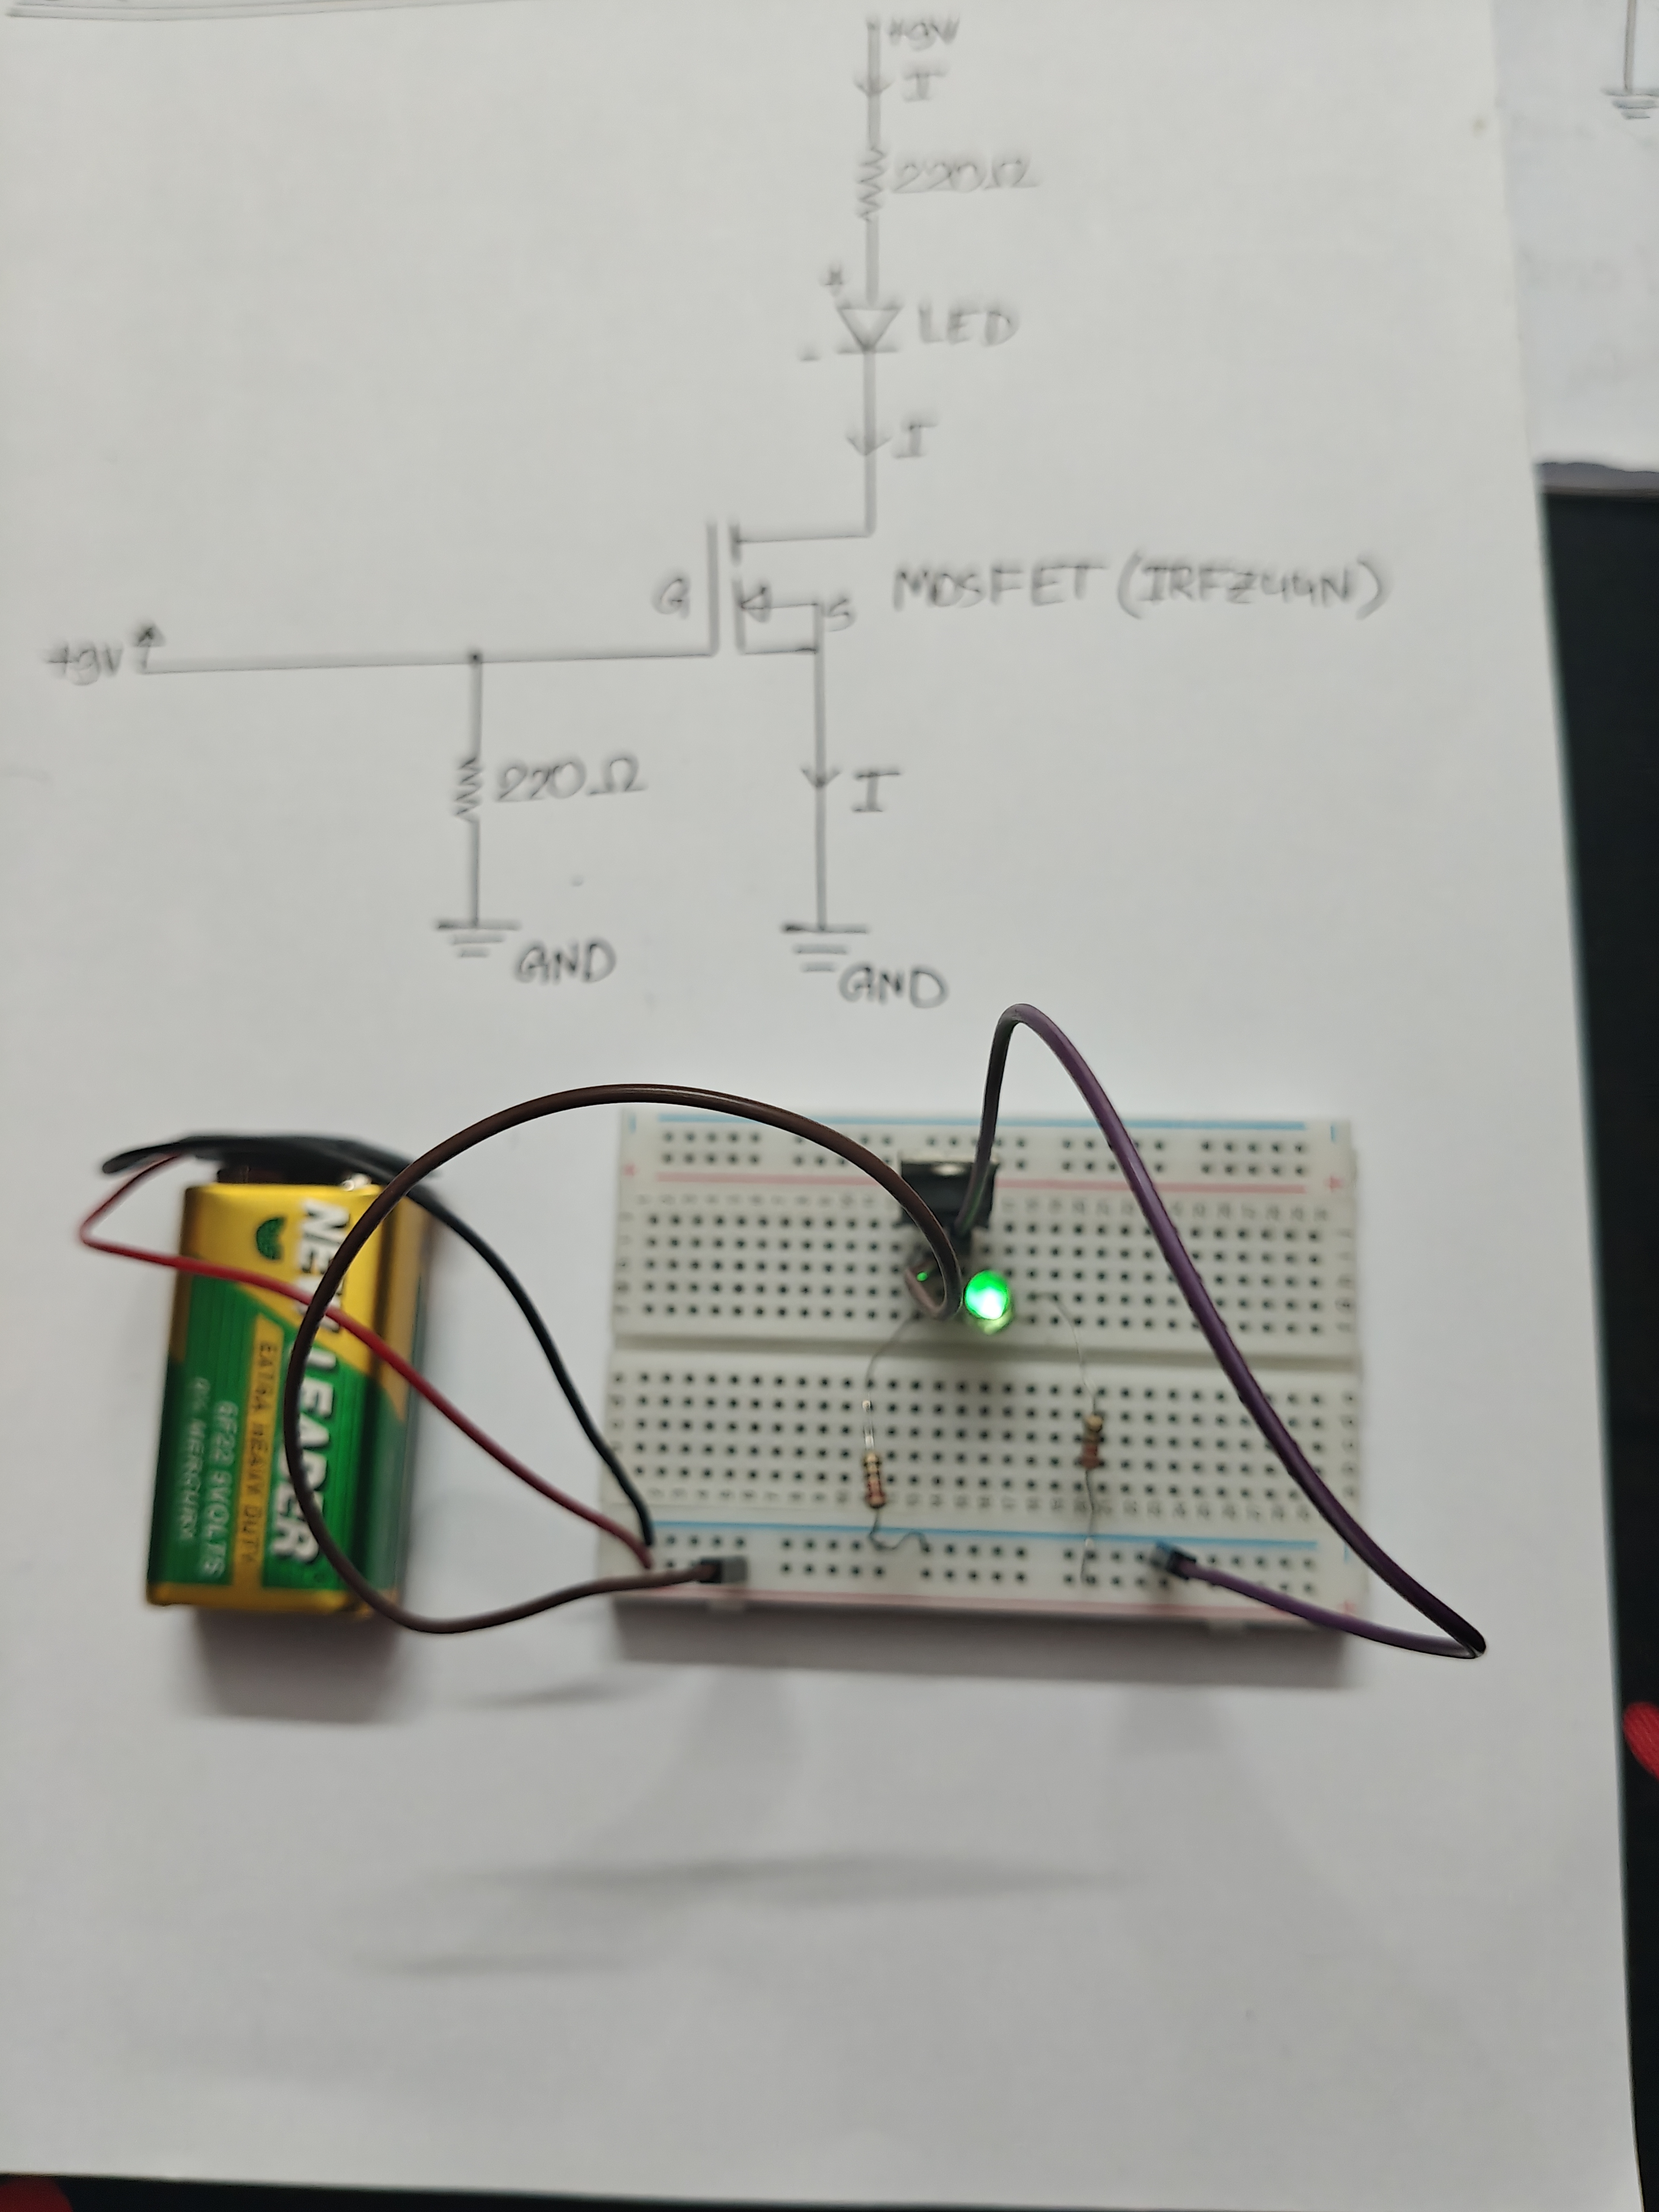 +9V
I
220Ω
+
LED
-
I
G
S
MOSFET (IRFZ44N)
+9V
220Ω
I
GND
GND
NEW LEADER
EXTRA HEAVY DUTY
6F22 9VOLTS
0% MERCURY